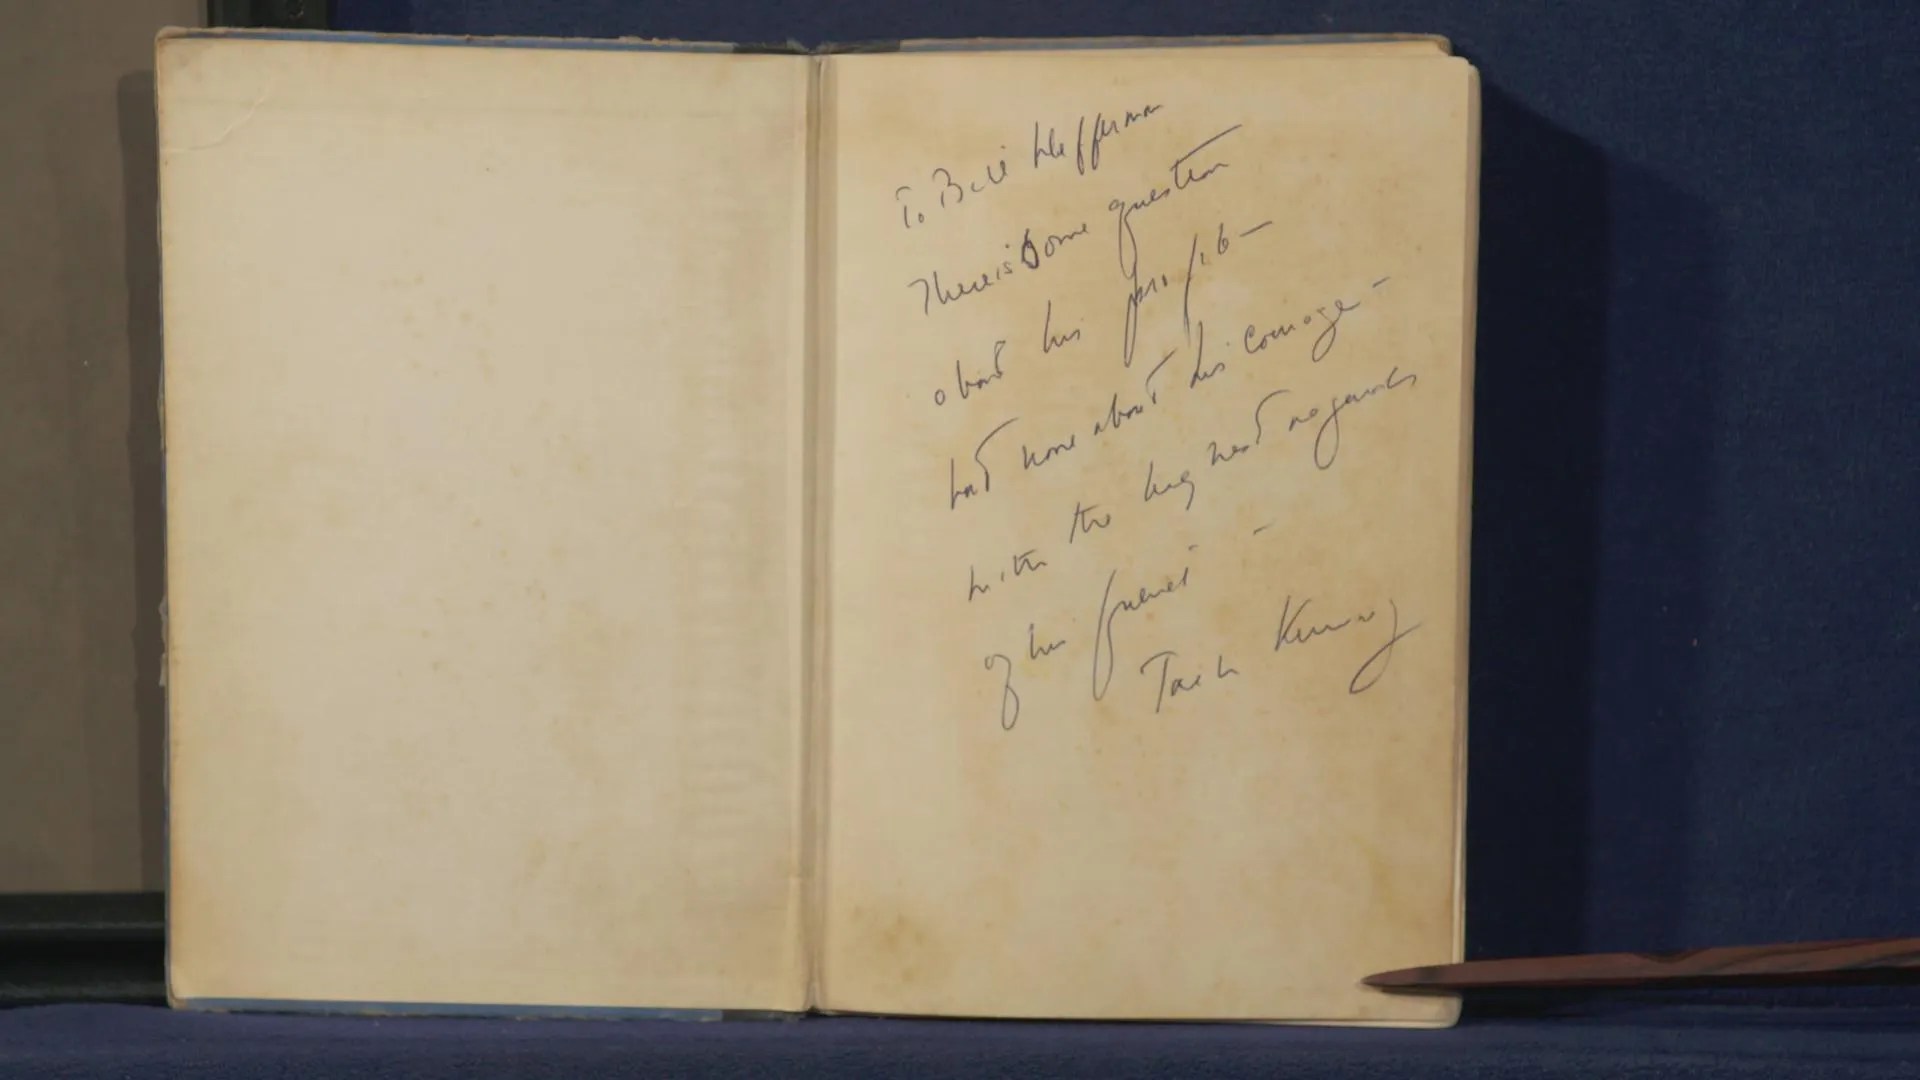 To Bill Heffernan
There is some question
about his profile —
but none about his courage —
with the highest regards
of his friend —
Jack Kennedy